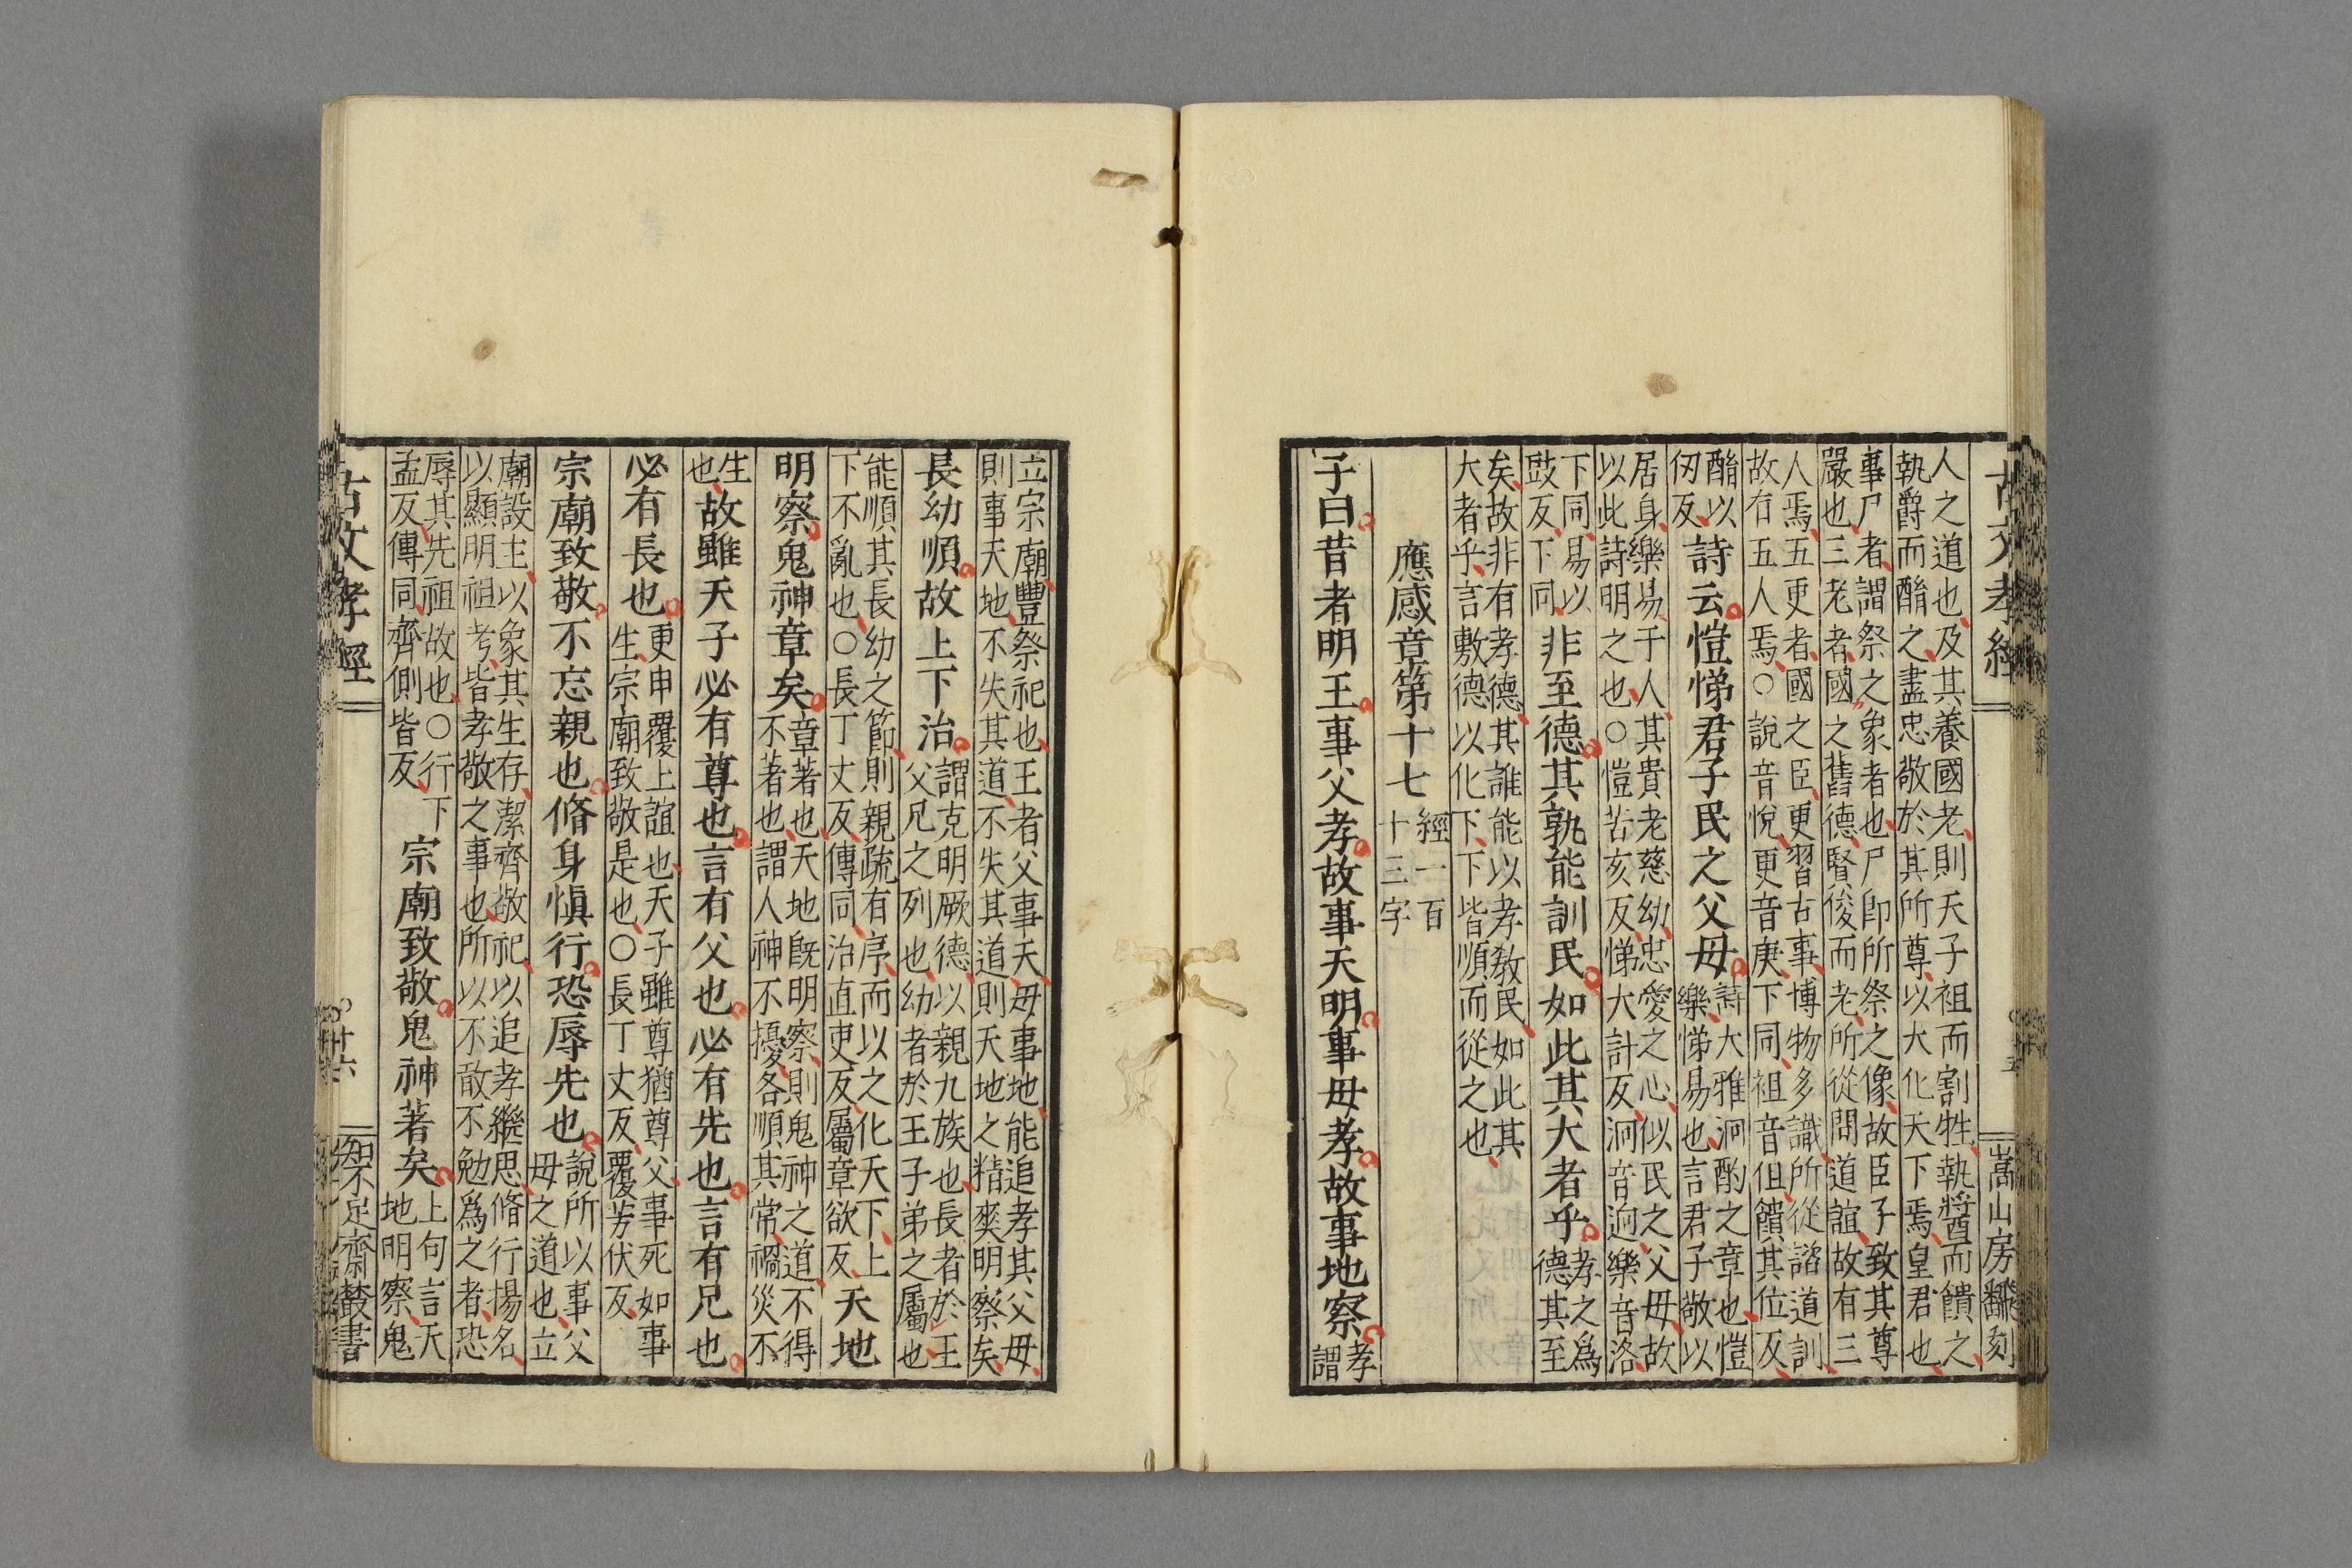 古文孝經
嵩山房翻刻
人之道也及其養國老則天子袒而割牲執醬而饋之
執爵而酳之盡忠敬於其所尊以大化天下焉皇君也
事尸者謂祭之象者也尸卽所祭之像故臣子致其尊
嚴也三老者國之舊德賢俊而老所從問道誼故有三
人焉五更者國之臣更習古事博物多識所從諮道訓
故有五人焉○說音悅更音庚下同袒音但饋其位反
酳以
仞反
詩云愷悌君子民之父母
詩大雅泂酌之章也愷
樂悌易也言君子敬以
居身樂易于人其貴老慈幼忠愛之心似民之父母故
以此詩明之也○愷苦亥反悌大計反泂音迥樂音洛
下同易以
豉反下同
非至德其孰能訓民如此其大者乎
孝之爲
德其至
矣故非有孝德其誰能以孝敎民如此其
大者乎言敷德以化下下皆順而從之也
應感章第十七
經一百
十三字
子曰昔者明王事父孝故事天明事母孝故事地察
孝
謂
立宗廟豐祭祀也王者父事天母事地能追孝其父母
則事天地不失其道不失其道則天地之精爽明察矣
長幼順故上下治
謂克明厥德以親九族也長者於王
父兄之列也幼者於王子弟之屬也
能順其長幼之節則親疏有序而以之化天下上
下不亂也○長丁丈反傳同治直吏反屬章欲反
天地
明察鬼神章矣
章著也天地旣明察則鬼神之道不得
不著也謂人神不擾各順其常禍災不
生
也
故雖天子必有尊也言有父也必有先也言有兄也
必有長也
更申覆上誼也天子雖尊猶尊父事死如事
生宗廟致敬是也○長丁丈反覆芳伏反
宗廟致敬不忘親也脩身愼行恐辱先也
說所以事父
母之道也立
廟設主以象其生存潔齊敬祀以追孝繼思脩行揚名
以顯明祖考皆孝敬之事也所以不敢不勉爲之者恐
辱其先祖故也○行下
孟反傳同齊側皆反
宗廟致敬鬼神著矣
上句言天
地明察鬼
古文孝經
廿六
知不足齋叢書